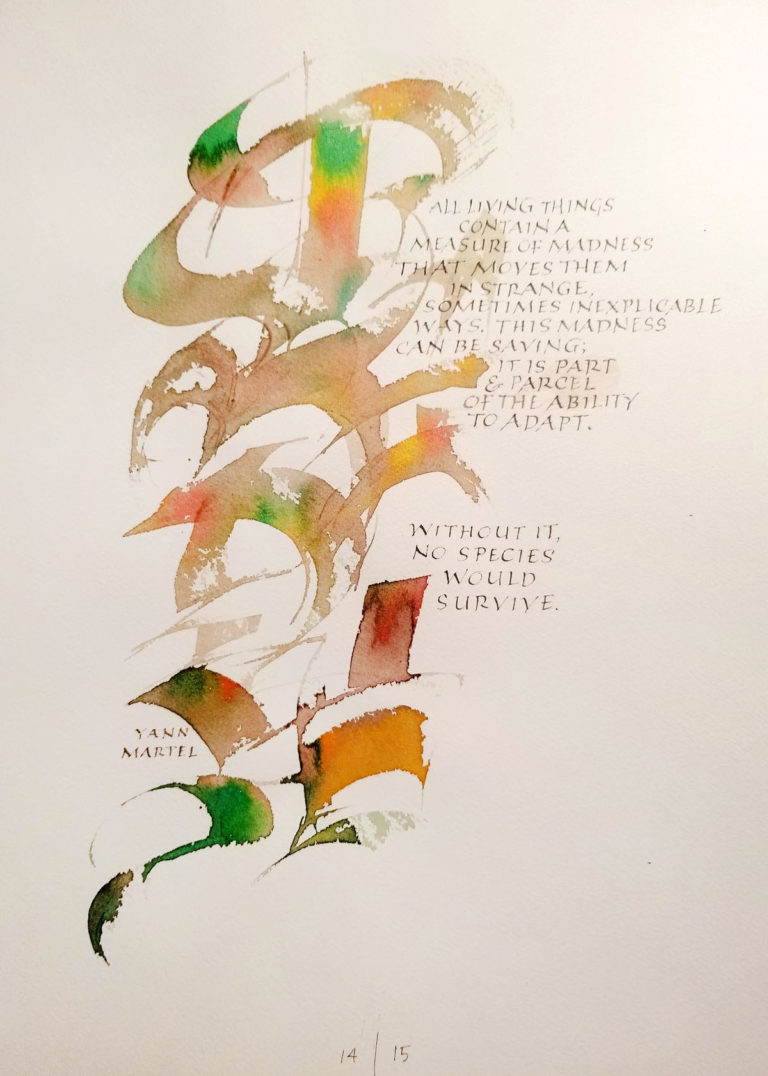 ALL LIVING THINGS
CONTAIN A
MEASURE OF MADNESS
THAT MOVES THEM
IN STRANGE,
SOMETIMES INEXPLICABLE
WAYS. THIS MADNESS
CAN BE SAVING;
IT IS PART
& PARCEL
OF THE ABILITY
TO ADAPT.
WITHOUT IT,
NO SPECIES
WOULD
SURVIVE.
YANN
MARTEL
14 | 15